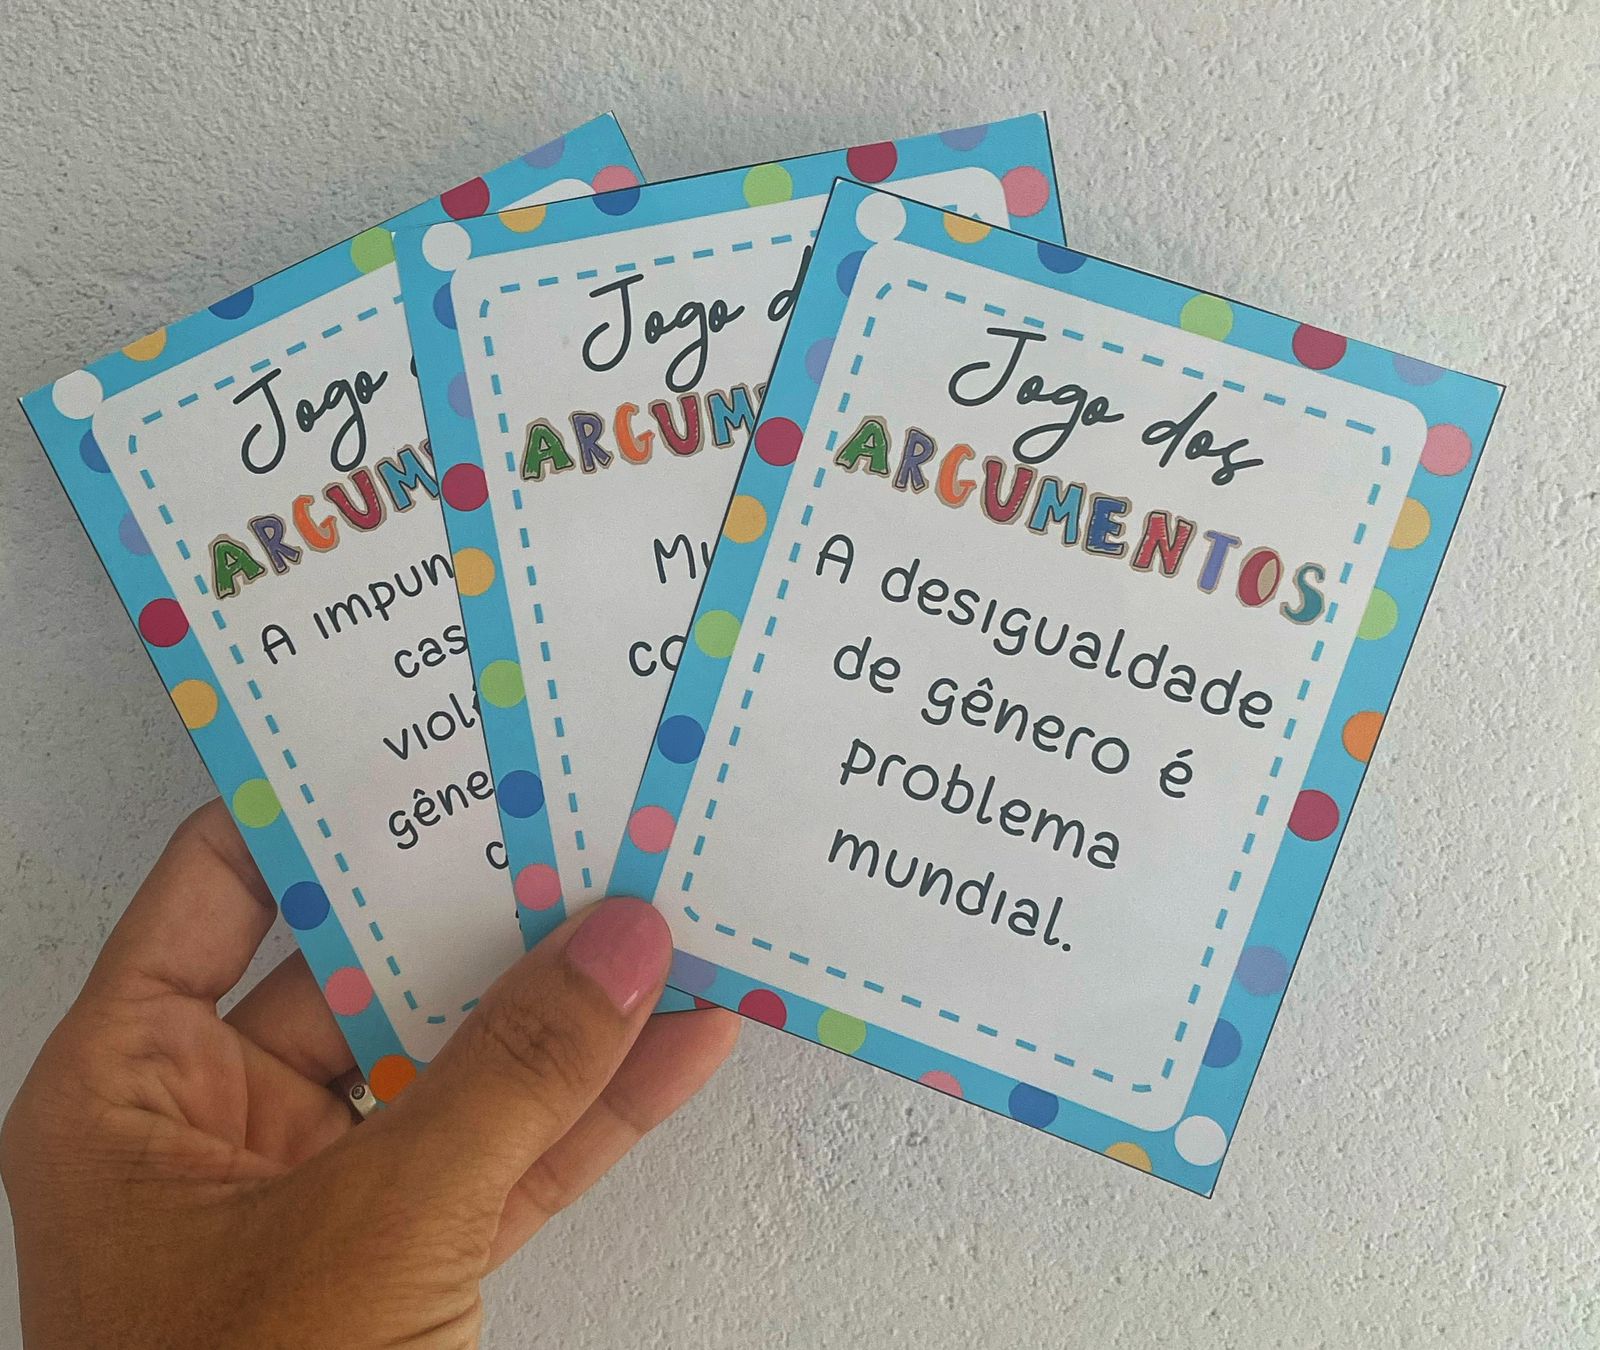 Jogo
ARGUM
A impun
cas
viol
gêne
c
Jogo d
ARGUM
Mu
co
Jogo dos
ARGUMENTOS
A desigualdade
de gênero é
problema
mundial.